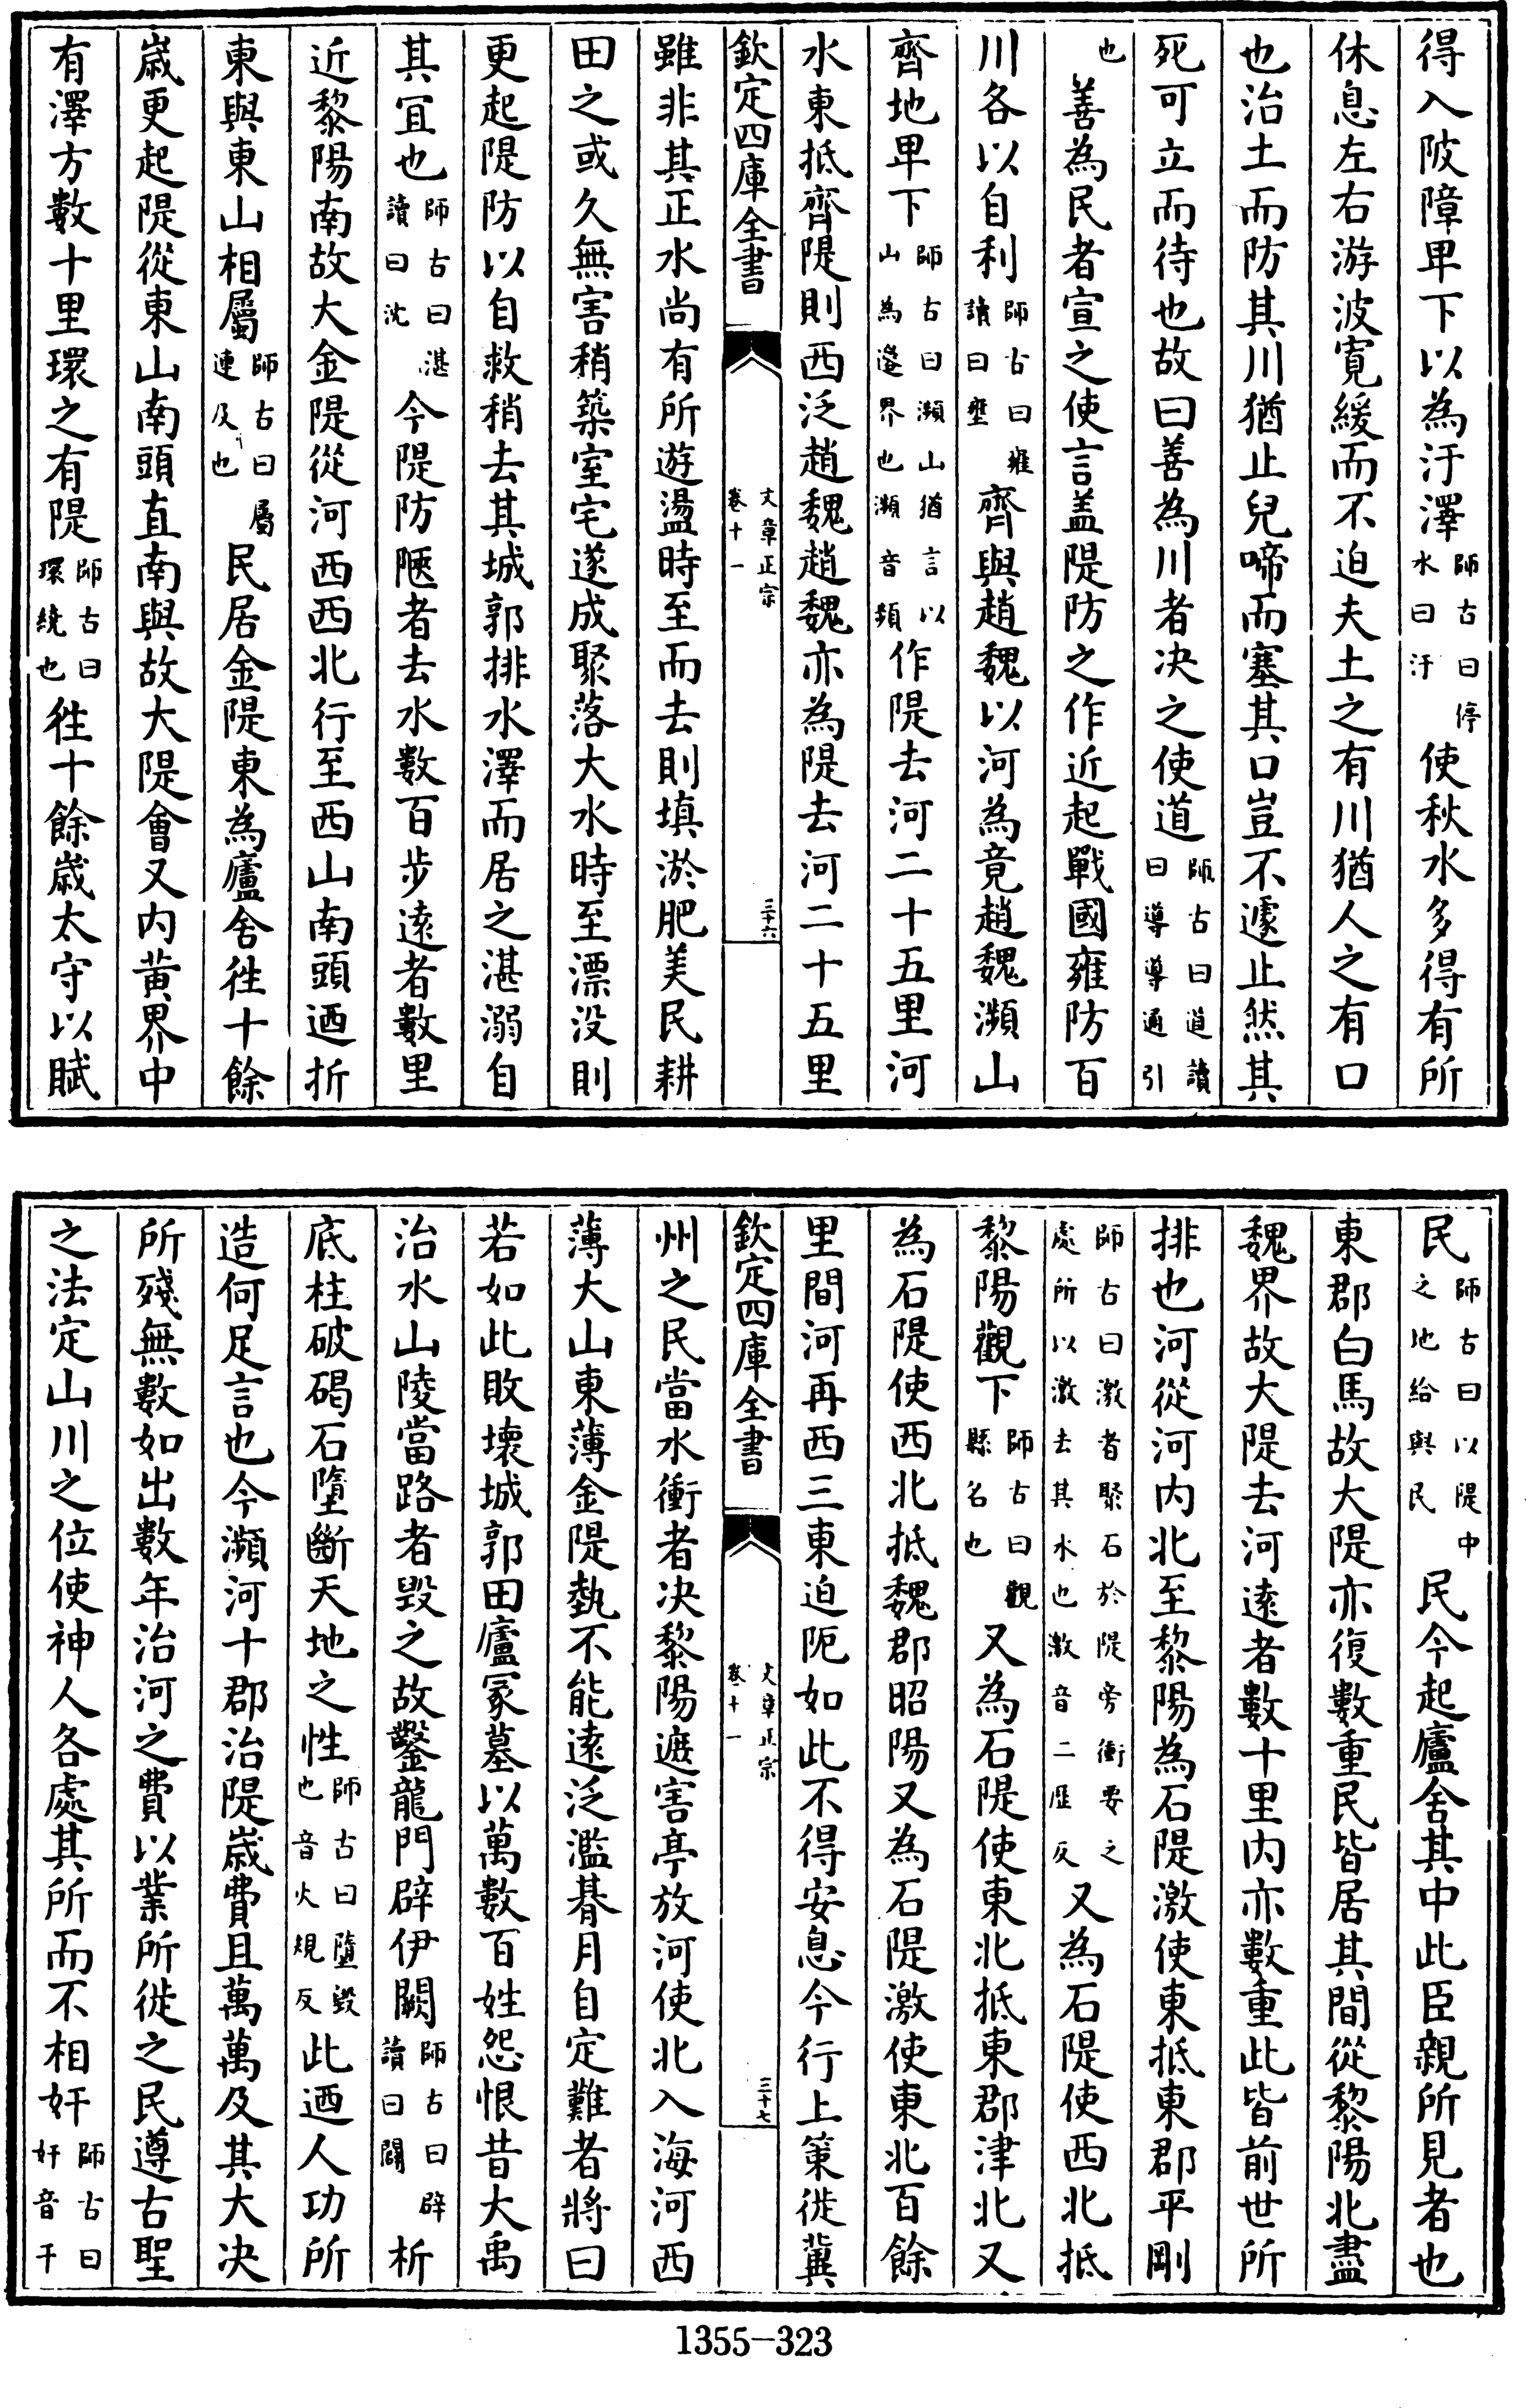 得入陂障卑下以為汙澤師古曰停水曰汙使秋水多得有所
休息左右游波寛緩而不迫夫土之有川猶人之有口
也治土而防其川猶止兒啼而塞其口豈不遽止然其
死可立而待也故曰善為川者决之使道師古曰道讀曰導導通引
也善為民者宣之使言盖隄防之作近起戰國雍防百
川各以自利師古曰雍讀曰壅齊與趙魏以河為竟趙魏瀕山
齊地卑下師古曰瀕山猶言以山為邊界也瀕音頻作隄去河二十五里河
水東抵齊隄則西泛趙魏趙魏亦為隄去河二十五里
欽定四庫全書
文章正宗
卷十一
三十六
雖非其正水尚有所遊盪時至而去則填淤肥美民耕
田之或久無害稍築室宅遂成聚落大水時至漂没則
更起隄防以自救稍去其城郭排水澤而居之湛溺自
其宜也師古曰湛讀曰沈今隄防陿者去水數百步逺者數里
近黎陽南故大金隄從河西西北行至西山南頭迺折
東與東山相屬師古曰屬連及也民居金隄東為廬舍徃十餘
歳更起隄從東山南頭直南與故大隄會又内黄界中
有澤方數十里環之有隄師古曰環繞也徃十餘歳太守以賦
民師古曰以隄中之地給與民民今起廬舍其中此臣親所見者也
東郡白馬故大隄亦復數重民皆居其間從黎陽北盡
魏界故大隄去河逺者數十里内亦數重此皆前世所
排也河從河内北至黎陽為石隄激使東抵東郡平剛
師古曰激者聚石於隄旁衝要之處所以激去其水也激音二歴反又為石隄使西北抵
黎陽觀下師古曰觀縣名也又為石隄使東北抵東郡津北又
為石隄使西北抵魏郡昭陽又為石隄激使東北百餘
里間河再西三東迫阨如此不得安息今行上策徙冀
欽定四庫全書
文章正宗
卷十一
三十七
州之民當水衝者决黎陽遮害亭放河使北入海河西
薄大山東薄金隄埶不能逺泛濫朞月自定難者將曰
若如此敗壞城郭田廬冢墓以萬數百姓怨恨昔大禹
治水山陵當路者毁之故鑿龍門辟伊闕師古曰辟讀曰闢析
底柱破碣石墮斷天地之性師古曰墮毁也音火規反此迺人功所
造何足言也今瀕河十郡治隄歳費且萬萬及其大决
所殘無數如出數年治河之費以業所徙之民遵古聖
之法定山川之位使神人各處其所而不相奸師古曰奸音干
1355-323